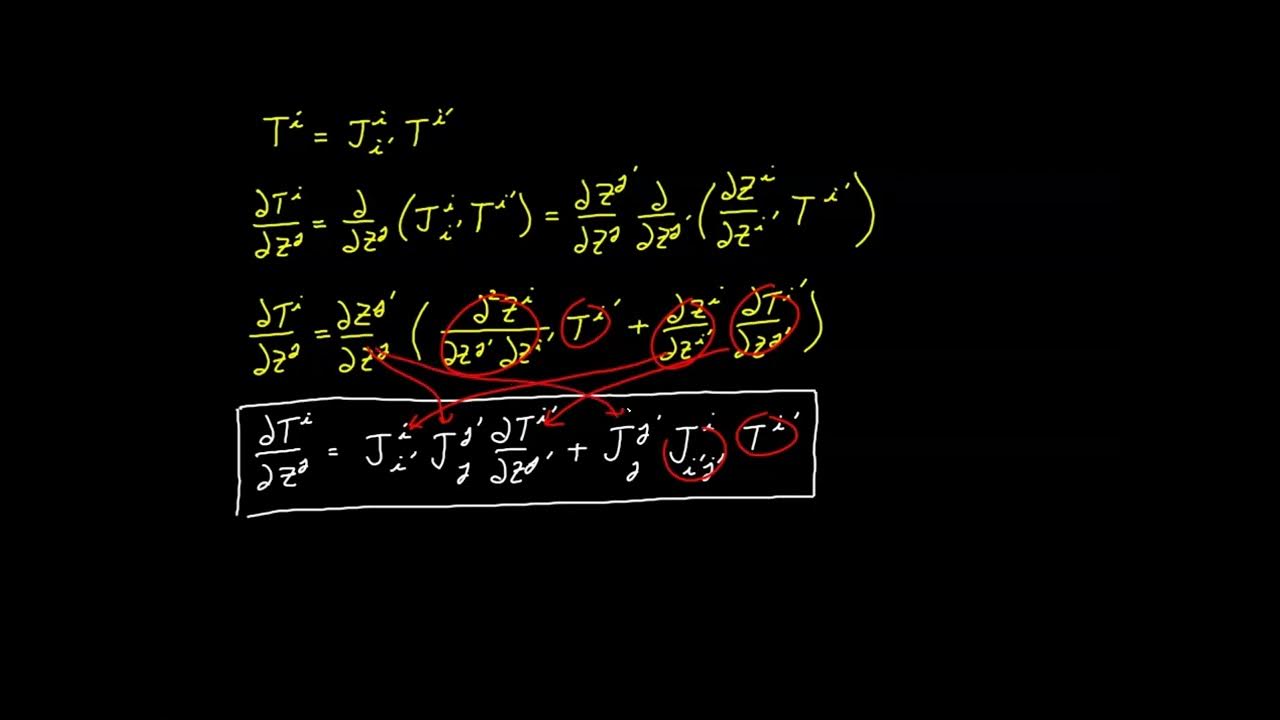 Tⁱ = Jⁱᵢ′ Tⁱ′
∂Tⁱ/∂Zʲ = ∂/∂Zʲ (Jⁱᵢ′ Tⁱ′) = ∂Zʲ′/∂Zʲ ∂/∂Zʲ′ (∂Zⁱ/∂Zⁱ′ Tⁱ′)
∂Tⁱ/∂Zʲ = ∂Zʲ′/∂Zʲ (∂²Zⁱ/∂Zʲ′∂Zⁱ′ Tⁱ′ + ∂Zⁱ/∂Zⁱ′ ∂Tⁱ′/∂Zʲ′)
∂Tⁱ/∂Zʲ = Jⁱᵢ′ Jʲ′ⱼ ∂Tⁱ′/∂Zʲ′ + Jʲ′ⱼ Jⁱᵢ′ⱼ′ Tⁱ′